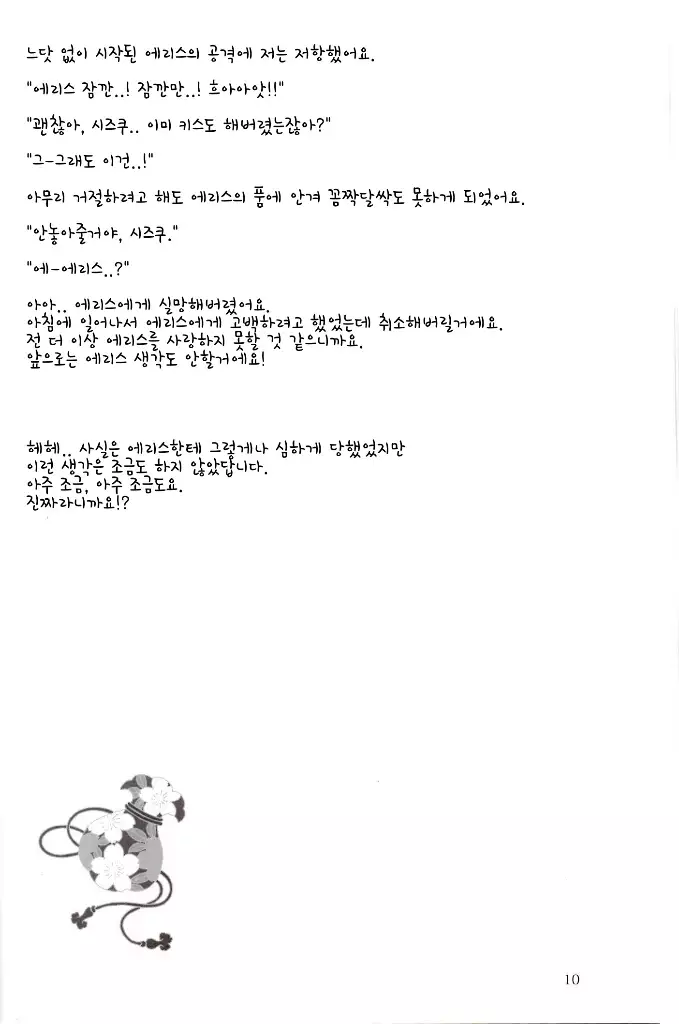 느닷 없이 시작된 에리스의 공격에 저는 저항했어요.
"에리스 잠깐..! 잠깐만..! 흐아아앗!!"
"괜찮아, 시즈쿠.. 이미 키스도 해버렸는잖아?"
"그-그래도 이건..!"
아무리 거절하려고 해도 에리스의 품에 안겨 꼼짝달싹도 못하게 되었어요.
"안놓아줄거야, 시즈쿠."
"에-에리스..?"
아아.. 에리스에게 실망해버렸어요.
아침에 일어나서 에리스에게 고백하려고 했었는데 취소해버릴거에요.
전 더 이상 에리스를 사랑하지 못할 것 같으니까요.
앞으로는 에리스 생각도 안할거에요!
헤헤.. 사실은 에리스한테 그렇게나 심하게 당했었지만
이런 생각은 조금도 하지 않았답니다.
아주 조금, 아주 조금도요.
진짜라니까요!?
10